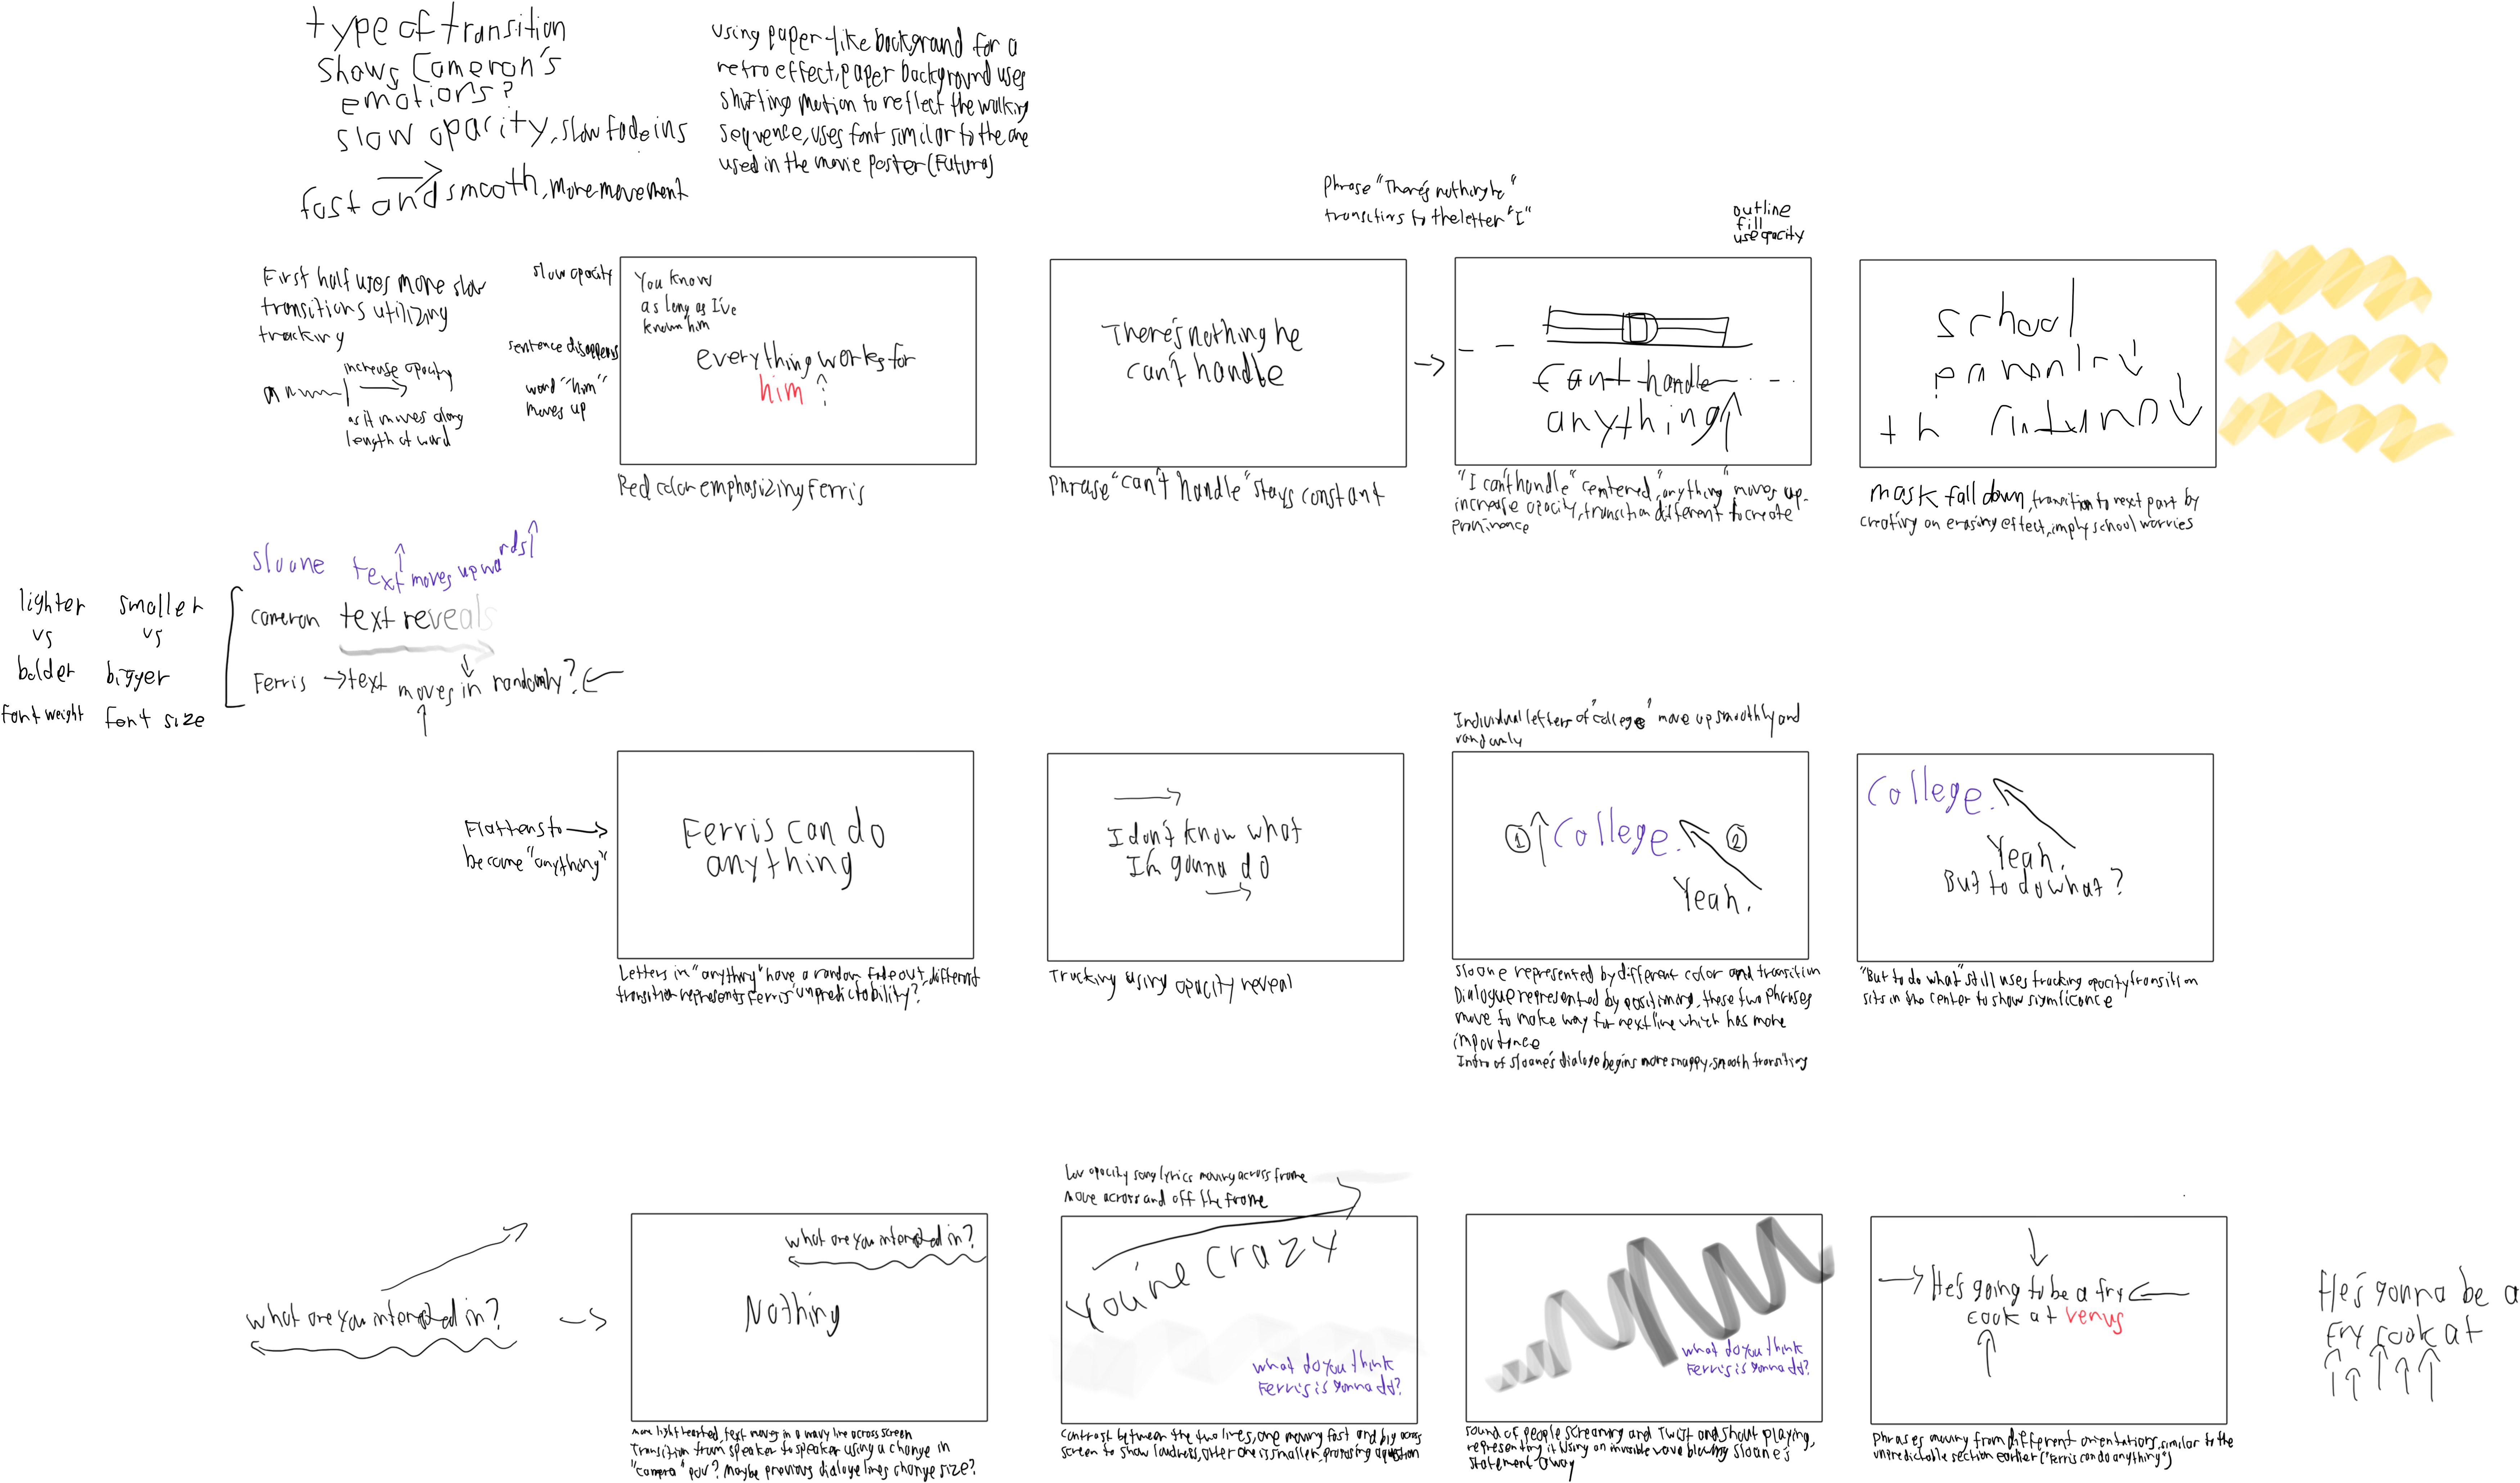 type of transition
shows Cameron's
emotions?
slow opacity, slow fade ins
fast and smooth, more movement
using paper-like background for a
retro effect, paper background uses
shifting motion to reflect the walking
sequence, uses font similar to the one
used in the movie poster (Futura)
Phrase "There's nothing he"
transitions to the letter "I"
outline
fill
use opacity
First half uses more slow
transitions utilizing
tracking
increase opacity
as it moves along
length of word
slow opacity
sentence disappears
word "him"
moves up
You know
as long as I've
known him
everything works for
him
Red color emphasizing Ferris
There's nothing he
can't handle
Phrase "can't handle" stays constant
can't handle
anything
"I can't handle" centered, "anything" moves up-
increase opacity, transition different to create
prominence
school
th
mask fall down, transition to next part by
creating an erasing effect, imply school worries
sloane text moves upwards
cameron text reveals
Ferris → text moves in randomly?
lighter smaller
vs vs
bolder bigger
font weight font size
Flattens to
become "anything"
Ferris can do
anything
Letters in "anything" have a random fade out, different
transition represents Ferris' unpredictability?
I don't know what
I'm gonna do
Tracking using opacity reveal
Individual letters of "college" move up smoothly and
randomly
① College. ②
Yeah.
Sloane represented by different color and transition
Dialogue represented by positioning, these two phrases
move to make way for next line which has more
importance
Intro of Sloane's dialoge begins more snappy, smooth transitions
College.
Yeah.
But to do what?
"But to do what" still uses tracking opacity transition
sits in the center to show signficance
what are you interested in?
what are you interested in?
Nothing
more light hearted, text moves in a wavy line across screen
Transition from speaker to speaker using a change in
"camera" pov? Maybe previous dialoge lines change size?
Low opacity song lyrics moving across frame
move across and off the frame
You're crazy
what do you think
Ferris is gonna do?
contrast between the two lines, one moving fast and big across
screen to show loudness, other one is smaller, proposing a question
what do you think
Ferris is gonna do?
sound of people screaming and Twist and shout playing,
representing it using an invisible wave blowing sloane's
statement away
He's going to be a fry
cook at venus
phrases moving from different orientations, similar to the
unpredictable section earlier ("Ferris can do anything")
He's gonna be a
fry cook at